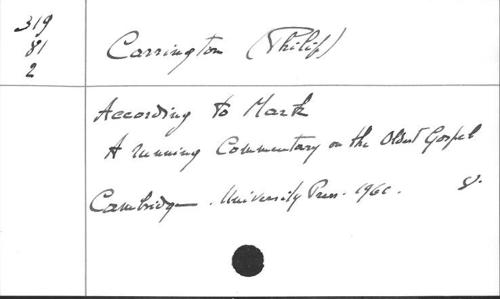 319
81
2
Carrington (Philip)
According to Mark
A running Commentary on the Oldest Gospel
Cambridge. University Press. 1960. 8.